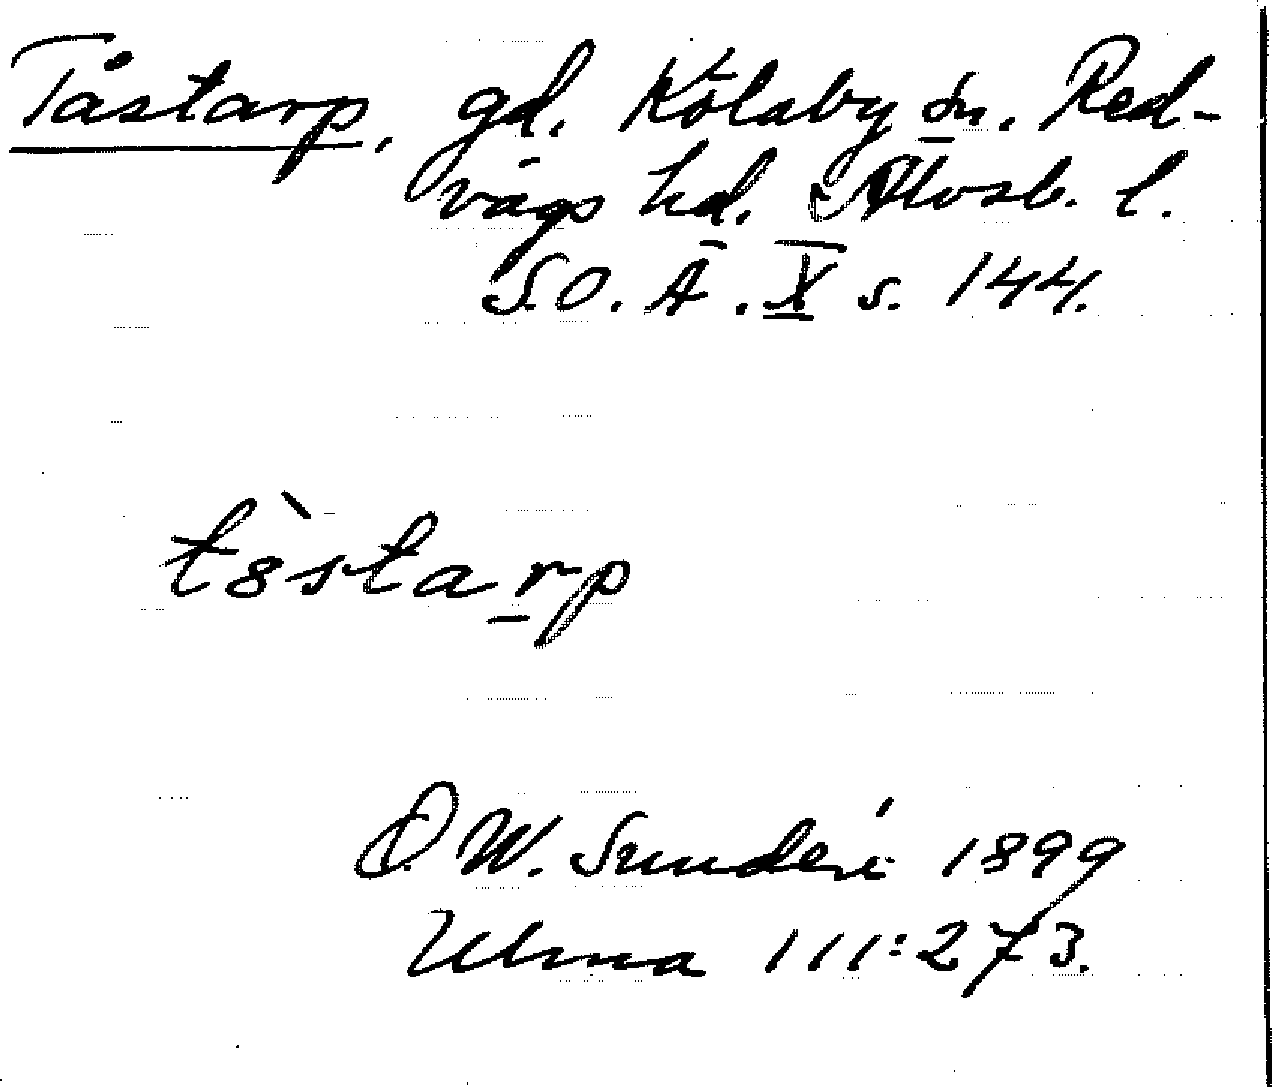 Tåstarp, gd. Kölaby sn. Red-
vägs hd. Älvsb. l.
S.O.Ä. X s. 144.
tåstarp
O.W. Sundén 1899
Ulma 111:273.